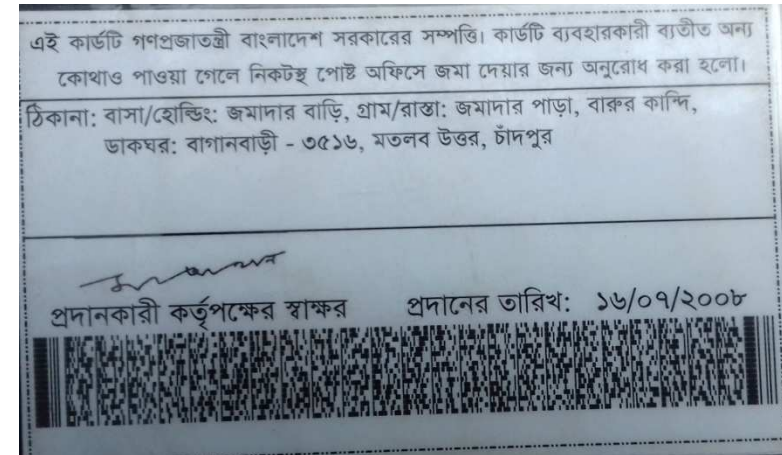 এই কার্ডটি গণপ্রজাতন্ত্রী বাংলাদেশ সরকারের সম্পত্তি। কার্ডটি ব্যবহারকারী ব্যতীত অন্য
কোথাও পাওয়া গেলে নিকটস্থ পোষ্ট অফিসে জমা দেয়ার জন্য অনুরোধ করা হলো।
ঠিকানা: বাসা/হোল্ডিং: জমাদার বাড়ি, গ্রাম/রাস্তা: জমাদার পাড়া, বারুর কান্দি,
ডাকঘর: বাগানবাড়ী - ৩৫১৬, মতলব উত্তর, চাঁদপুর
প্রদানকারী কর্তৃপক্ষের স্বাক্ষর প্রদানের তারিখ: ১৬/০৭/২০০৮